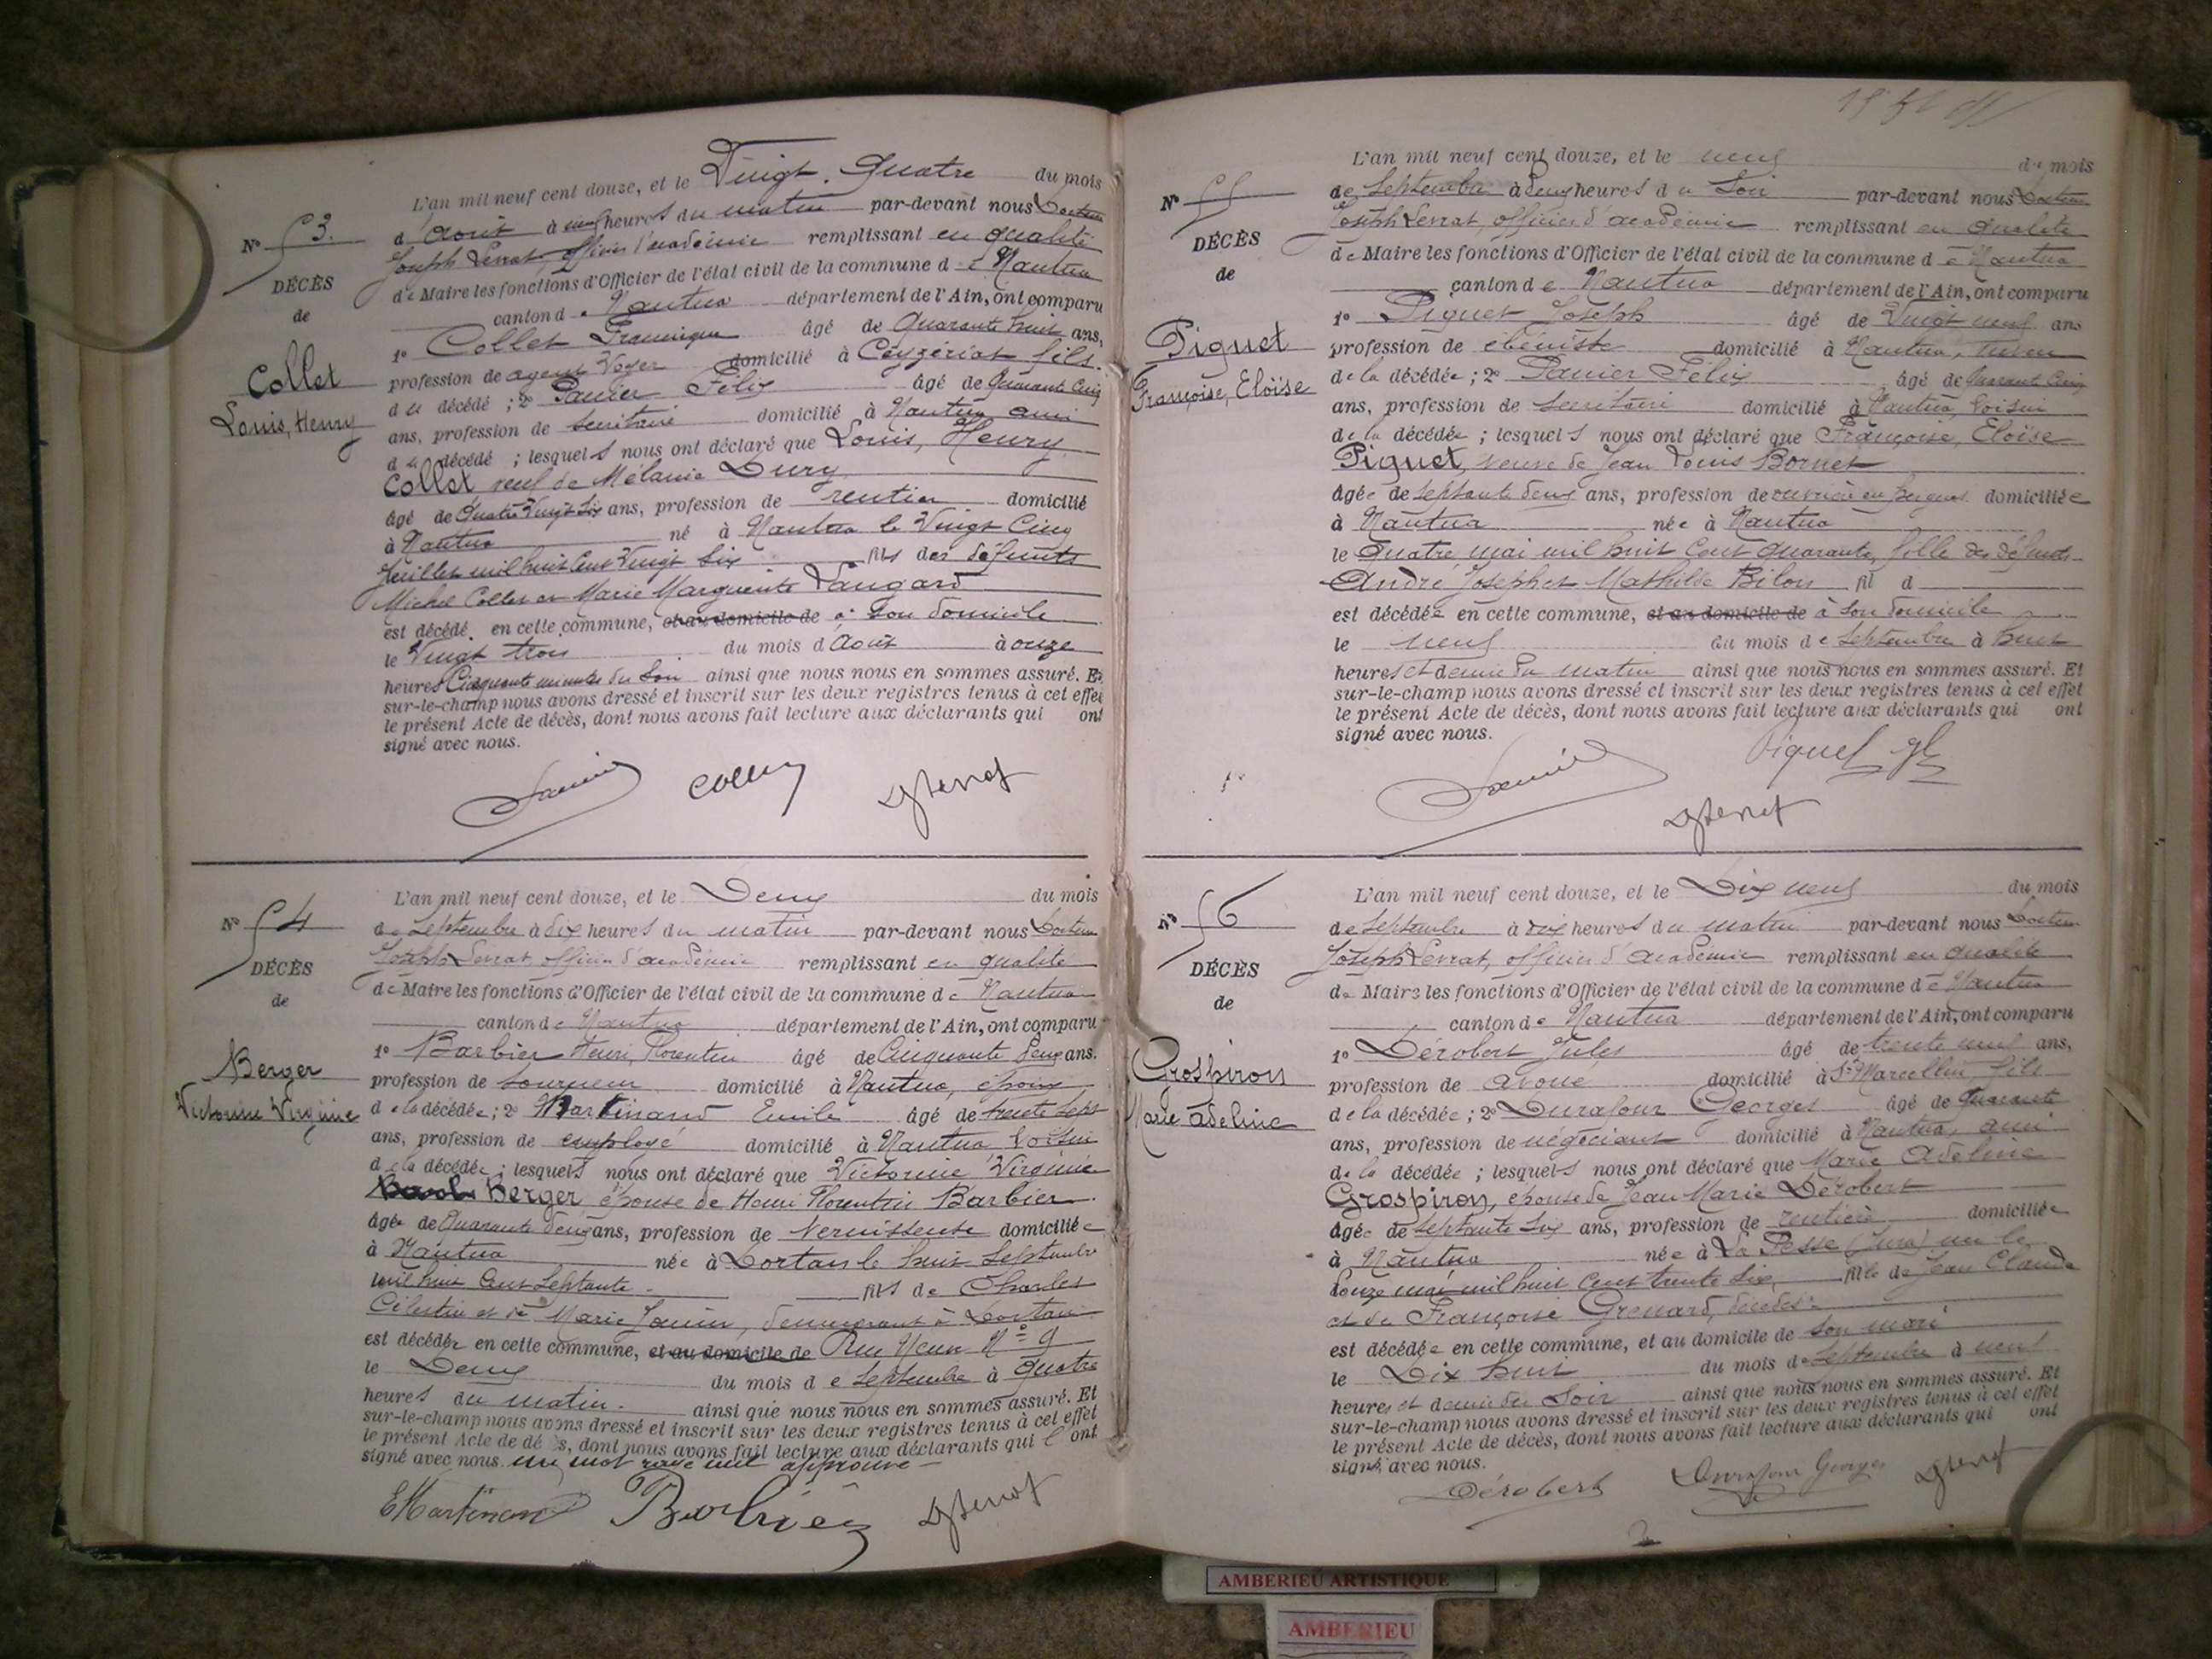 N° 53.
DÉCÈS
de
Collet
Louis, Henry
L'an mil neuf cent douze, et le Vingt. Quatre du mois
d'août à neuf heures du matin par-devant nous Docteur
Joseph Serrat, officier d'académie remplissant en qualité
de Maire les fonctions d'Officier de l'état civil de la commune de Nantua
canton de Nantua département de l'Ain, ont comparu
1° Collet âgé de Quarante huit ans,
profession de agent Voyer domicilié à Ceyzériat fils
du décédé ; 2° Panier Félix âgé de Quarante Cinq
ans, profession de secrétaire domicilié à Nantua ami
du décédé ; lesquels nous ont déclaré que Louis, Henry
Collet veuf de Mélanie Dury
âgé de Quatre Vingt Six ans, profession de rentier domicilié
à Nantua né à Nantua le Vingt Cinq
Juillet mil huit Cent Vingt Six fils des défunts
Michel Collet et Marie Marguerite Vaugard
est décédé en cette commune, et au domicile de à son domicile
le Vingt trois du mois d'août à onze
heures Cinquante minutes du Soir ainsi que nous nous en sommes assuré. Et
sur-le-champ nous avons dressé et inscrit sur les deux registres tenus à cet effet
le présent Acte de décès, dont nous avons fait lecture aux déclarants qui ont
signé avec nous.
N° 54
DÉCÈS
de
Berger
Victorine Virginie
L'an mil neuf cent douze, et le Deux du mois
de Septembre à dix heures du matin par-devant nous Docteur
Joseph Serrat, officier d'académie remplissant en qualité
de Maire les fonctions d'Officier de l'état civil de la commune de Nantua
canton de Nantua département de l'Ain, ont comparu
1° Barbier Henri, Florentin âgé de Cinquante Deux ans.
profession de tourneur domicilié à Nantua, époux
de la décédée ; 2° Martinand Emile âgé de trente sept
ans, profession de employé domicilié à Nantua Voisin
de la décédée ; lesquels nous ont déclaré que Victorine Virginie
Berger épouse de Henri Florentin Barbier
âgée de Quarante deux ans, profession de Vernisseuse domiciliée
à Nantua née à Dortan le huit Septembre
mil huit Cent Septante fils de Charles
Célestin et de Marie Janin, demeurant à Dortan
est décédée en cette commune, et au domicile de Rue Neuve N° 9
le Deux du mois de Septembre à quatre
heures du matin. ainsi que nous nous en sommes assuré. Et
sur-le-champ nous avons dressé et inscrit sur les deux registres tenus à cet effet
le présent Acte de décès, dont nous avons fait lecture aux déclarants qui ont
signé avec nous. un mot rayé nul approuvé
EMartinand Barbier
N° 55
DÉCÈS
de
Piguet
Françoise, Eloïse
L'an mil neuf cent douze, et le neuf du mois
de Septembre à Deux heures du Soir par-devant nous Docteur
Joseph Serrat, officier d'académie remplissant en qualité
de Maire les fonctions d'Officier de l'état civil de la commune de Nantua
canton de Nantua département de l'Ain, ont comparu
1° Piguet Joseph âgé de Vingt neuf ans
profession de ébéniste domicilié à Nantua, neveu
de la décédée ; 2° Panier Félix âgé de Quarante Cinq
ans, profession de secrétaire domicilié à Nantua, Voisin
de la décédée ; lesquels nous ont déclaré que Françoise, Eloïse
Piguet, veuve de Jean Louis Bornet
âgée de septante deux ans, profession de ouvrière en peignes domiciliée
à Nantua née à Nantua
le Quatre mai mil huit Cent quarante, fille des défunts
André Joseph et Mathilde Bilon fil d
est décédée en cette commune, et au domicile de à son domicile
le neuf du mois de Septembre à huit
heures et demie du matin ainsi que nous nous en sommes assuré. Et
sur-le-champ nous avons dressé et inscrit sur les deux registres tenus à cet effet
le présent Acte de décès, dont nous avons fait lecture aux déclarants qui ont
signé avec nous.
Piguet
N° 56
DÉCÈS
de
Grospiron
Marie Adeline
L'an mil neuf cent douze, et le Dix neuf du mois
de Septembre à dix heures du matin par-devant nous Docteur
Joseph Serrat, officier d'académie remplissant en qualité
de Maire les fonctions d'Officier de l'état civil de la commune de Nantua
canton de Nantua département de l'Ain, ont comparu
1° Dérobert Jules âgé de trente neuf ans,
profession de avoué domicilié à St Marcellin, fils
de la décédée ; 2° Durafour Georges âgé de Quarante
ans, profession de négociant domicilié à Nantua, ami
de la décédée ; lesquels nous ont déclaré que Marie Adeline
Grospiron, épouse de Jean Marie Dérobert
âgée de septante six ans, profession de rentière domiciliée
à Nantua née à La Pesse (Jura) le
douze mai mil huit cent trente six, fille de Jean Claude
et de Françoise Grenard, décédés
est décédée en cette commune, et au domicile de son mari
le Dix huit du mois de Septembre à neuf
heures et demie du Soir ainsi que nous nous en sommes assuré. Et
sur-le-champ nous avons dressé et inscrit sur les deux registres tenus à cet effet
le présent Acte de décès, dont nous avons fait lecture aux déclarants qui ont
signé avec nous.
Dérobert Durafour Georges
AMBERIEU ARTISTIQUE
AMBERIEU